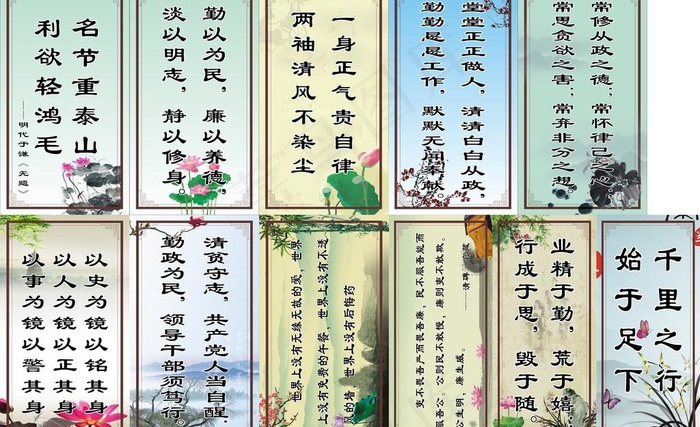 名节重泰山
利欲轻鸿毛
——明代于谦《无题》
勤以为民，廉以养德，
淡以明志，静以修身。
一身正气贵自律
两袖清风不染尘
堂堂正正做人，清清白白从政，
勤勤恳恳工作，默默无闻奉献。
常修从政之德；常怀律己之心，
常思贪欲之害；常弃非分之想。
以史为镜以铭其身
以人为镜以正其身
以事为镜以警其身
清贫守志，共产党人当自醒；
勤政为民，领导干部须笃行。
世界上没有无缘无故的爱，世界
上没有免费的午餐，世界上没有不透
的墙，世界上没有后悔药
吏不畏吾严而畏吾廉，民不服吾能而
服吾公。公则民不敢慢，廉则吏不敢欺。
公生明 廉生威。
——清碑
业精于勤，荒于嬉；
行成于思，毁于随
千里之行
始于足下